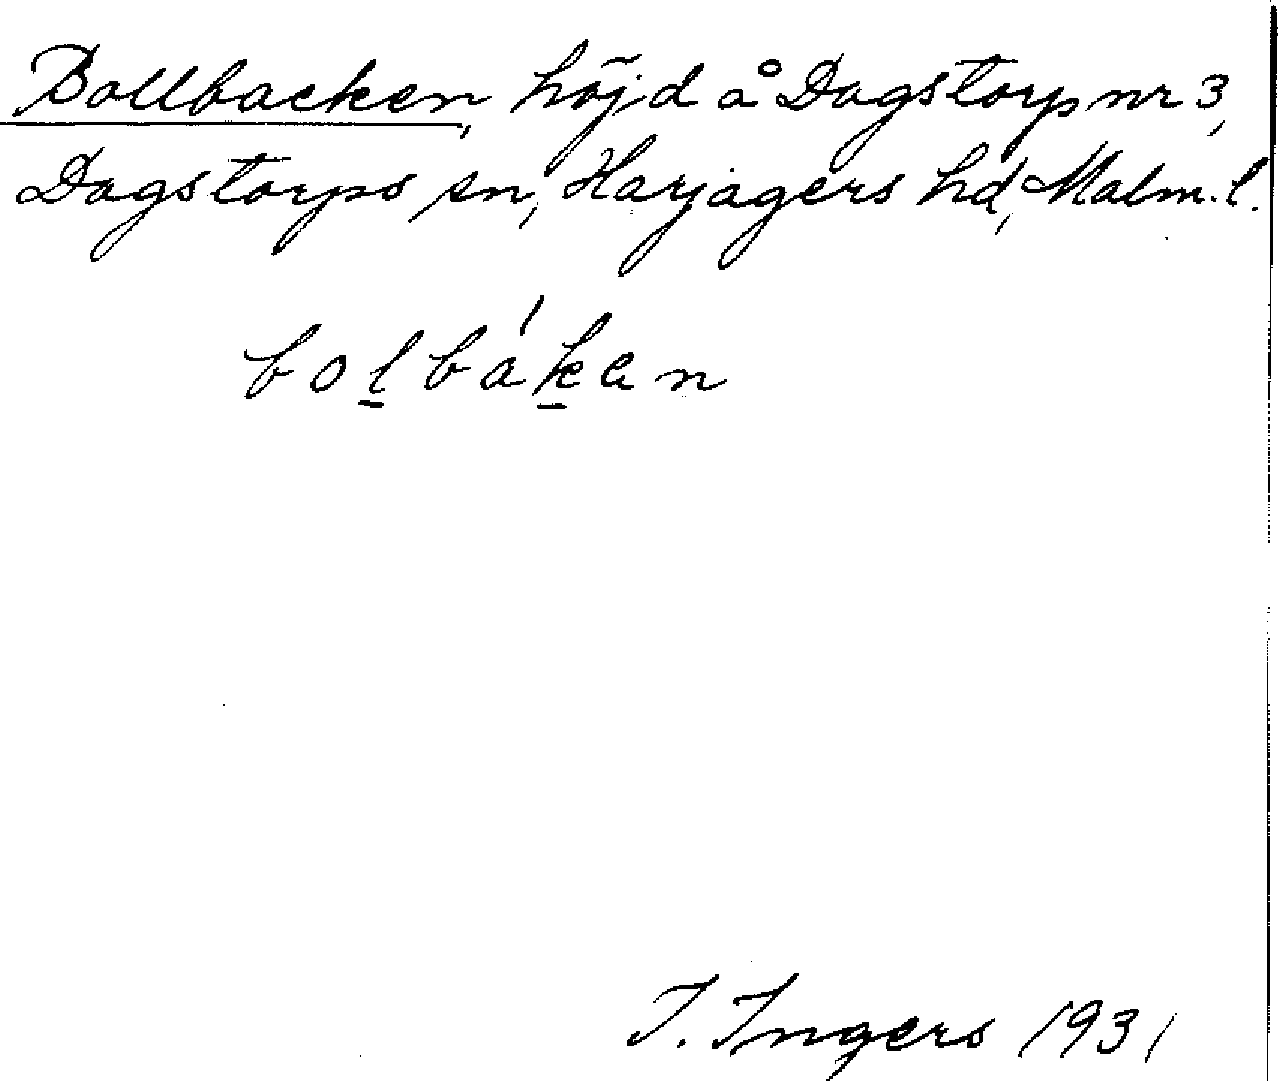 Bollbacken, höjd å Dagstorp nr 3,
Dagstorps sn, Harjagers hd, Malm. l.
bol̲bák̲an
I. Ingers 1931